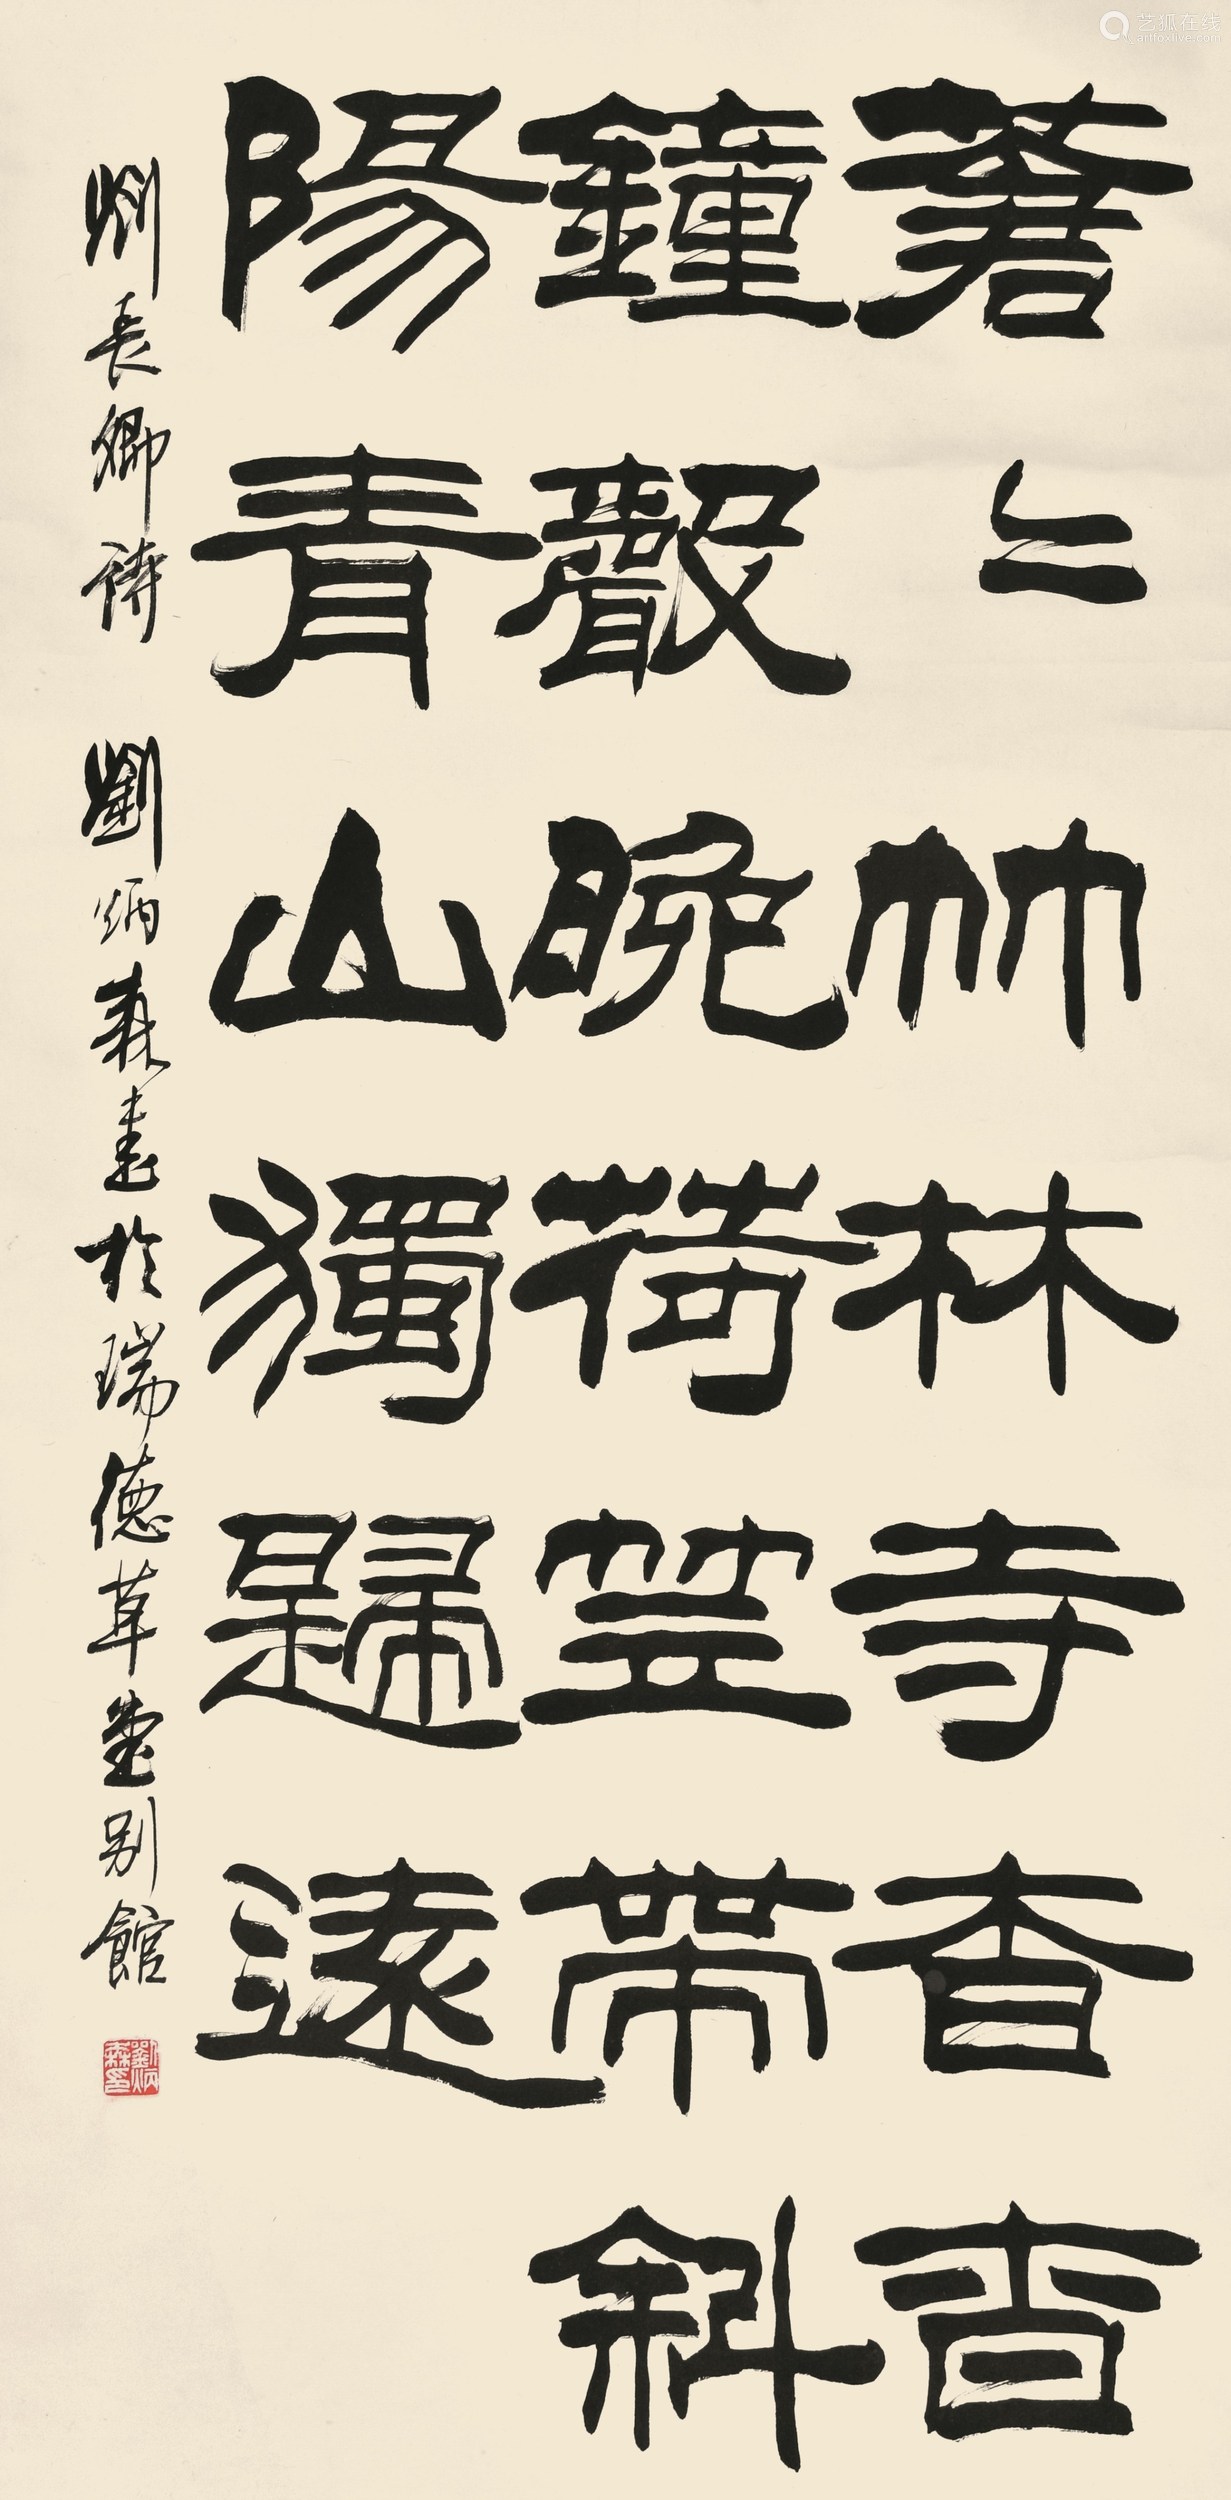 艺狐在线
artfoxlive.com
蒼〻竹林寺杳杳
鐘聲晚荷笠帶斜
陽青山獨歸遠
劉長卿詩 劉炳森書於瑞德草堂別館
劉炳森印